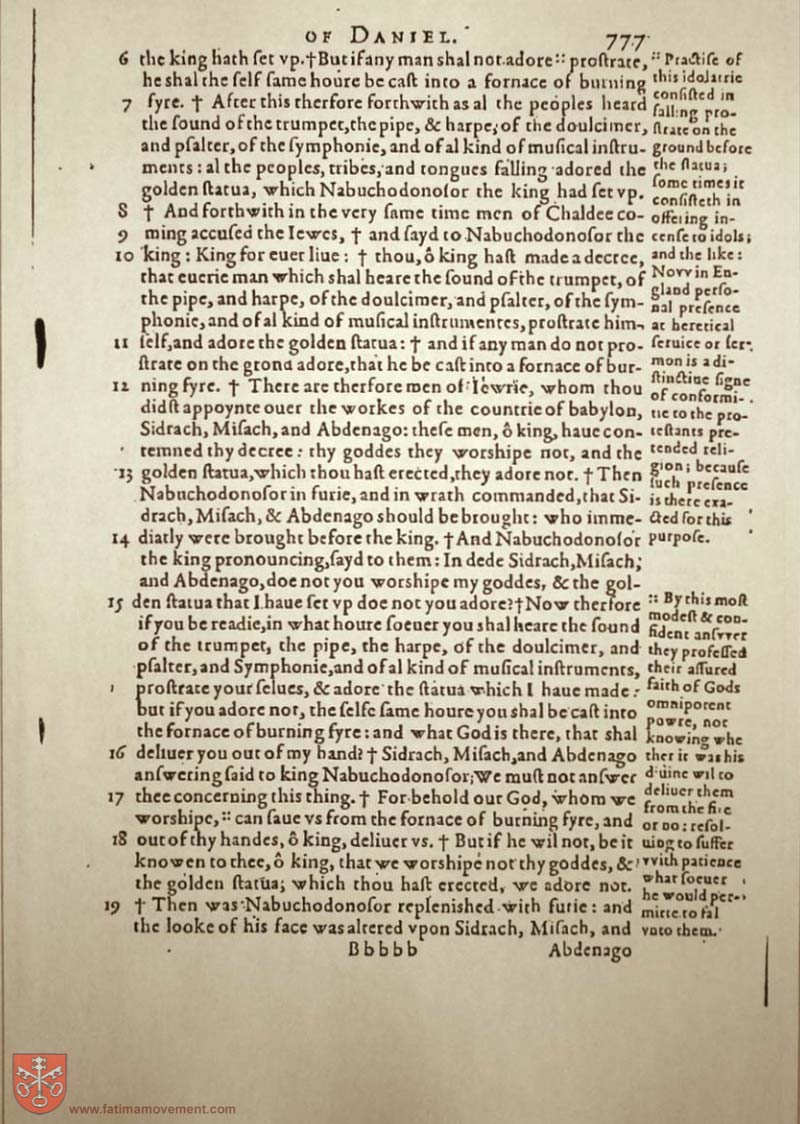 OF DANIEL. 777
6 the king hath ſet vp.†But if any man shal not adore :: proſtrate,
he shal the ſelf ſame houre be caſt into a fornace of burning
7 fyre. † After this therfore forthwith as al the peoples heard
the ſound of the trumpet, the pipe, & harpe, of the doulcimer,
and pſalter, of the ſymphonie, and of al kind of muſical inſtru-
ments: al the peoples, tribes, and tongues falling adored the
golden ſtatua, which Nabuchodonoſor the king had ſet vp.
8 † And forthwith in the very ſame time men of Chaldee co-
9 ming accuſed the Iewes, † and ſayd to Nabuchodonoſor the
10 king: King for euer liue: † thou, ô king haſt made a decree,
that euerie man which shal heare the ſound of the trumpet, of
the pipe, and harpe, of the doulcimer, and pſalter, of the ſym-
phonie, and of al kind of muſical inſtrumentes, proſtrate him-
11 ſelf, and adore the golden ſtatua: † and if any man do not pro-
ſtrate on the grond adore, that he be caſt into a fornace of bur-
12 ning fyre. † There are therfore men of Iewrie, whom thou
didſt appoynte ouer the workes of the countrie of babylon,
Sidrach, Miſach, and Abdenago: theſe men, ô king, haue con-
temned thy decree: thy goddes they worshipe not, and the
13 golden ſtatua, which thou haſt erected, they adore not. † Then
Nabuchodonoſor in furie, and in wrath commanded, that Si-
drach, Miſach, & Abdenago should be brought: who imme-
14 diatly were brought before the king. † And Nabuchodonoſor
the king pronouncing, ſayd to them: In dede Sidrach, Miſach,
and Abdenago, doe not you worshipe my goddes, & the gol-
15 den ſtatua that I haue ſet vp doe not you adore? † Now therfore
if you be readie, in what houre ſoeuer you shal heare the ſound
of the trumpet, the pipe, the harpe, of the doulcimer, and
pſalter, and Symphonie, and of al kind of muſical inſtruments,
proſtrate your ſelues, & adore the ſtatua which I haue made:
but if you adore not, the ſelfe ſame houre you shal be caſt into
the fornace of burning fyre: and what God is there, that shal
16 deliuer you out of my hand? † Sidrach, Miſach, and Abdenago
anſwering ſaid to king Nabuchodonoſor; We muſt not anſwer
17 thee concerning this thing. † For behold our God, whom we
worshipe, :: can ſaue vs from the fornace of burning fyre, and
18 out of thy handes, ô king, deliuer vs. † But if he wil not, be it
knowen to thee, ô king, that we worshipe not thy goddes, &
the golden ſtatua; which thou haſt erected, we adore not.
19 † Then was Nabuchodonoſor replenished with furie: and
the looke of his face was altered vpon Sidrach, Miſach, and
Bbbbb Abdenago
:: Practiſe of
this idolatrie
conſiſted in
falling pro-
ſtrate on the
ground before
the ſtatua;
ſome times it
conſiſteth in
offering in-
cenſe to idols;
and the like:
Novv in En-
gland perſo-
nal preſence
at heretical
ſeruice or ſer-
mon is a di-
ſtinctiue ſigne
of conformi-
tie to the pro-
teſtants pre-
tended reli-
gion; becauſe
ſuch preſence
is there exa-
cted for this
purpoſe.
:: By this moſt
modeſt & con-
fident anſvver
they profeſſed
their aſſured
faith of Gods
omnipotent
powre, not
knowing whe
ther it was his
diuine wil to
deliuer them
from the fire
or no: reſol-
uing to ſuffer
vvith patience
what ſoeuer
he would per-
mitte to fal
vnto them.
www.fatimamovement.com